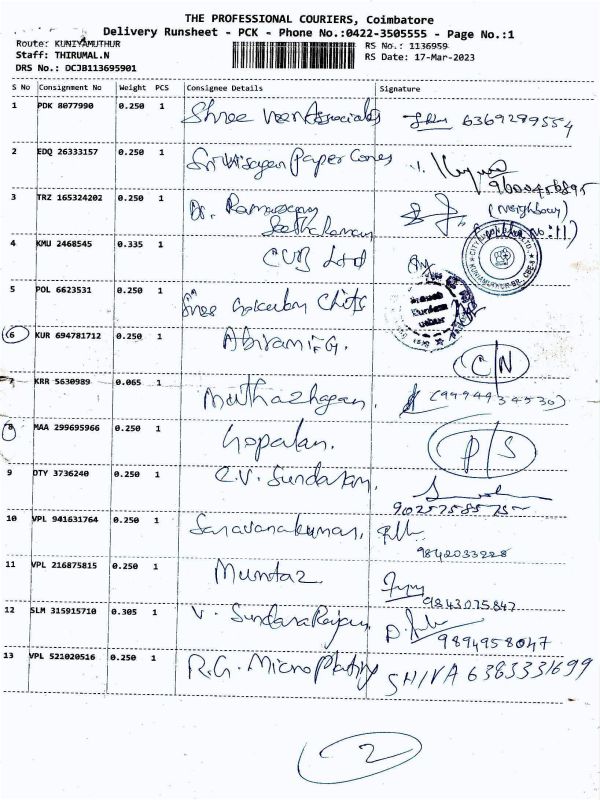 THE PROFESSIONAL COURIERS, Coimbatore
Delivery Runsheet - PCK - Phone No.:0422-3505555 - Page No.:1
Route: KUNIYAMUTHUR RS No.: 1136959
Staff: THIRUMAL.N RS Date: 17-Mar-2023
DRS No.: DCJB113695901
S No Consignment No Weight PCS Consignee Details Signature
1 PDK 8077990 0.250 1 Shree Veer Associates 6369289554
2 EDQ 26333157 0.250 1 Paper Cones
3 TRZ 165324202 0.250 1 Dr. Ramasamy (Neighbour)
4 KMU 2468545 0.335 1 CUB Ltd
5 POL 6623531 0.250 1 Shree Gokulam Chits
6 KUR 694781712 0.250 1 Abirami.G. C/N
7 KRR 5630989 0.065 1 Muthazhagan
8 MAA 299695966 0.250 1 Gopalan. D/S
9 DTY 3736240 0.250 1 C.V. Sundaram.
10 VPL 941631764 0.250 1 Saravanakumar. 9842033228
11 VPL 216875815 0.250 1 Mumtaz 9843075847
12 SLM 315915710 0.305 1 V. SundaraRajan 9894958047
13 VPL 521020516 0.250 1 R.G. Micro Plating SHIVA 6383331699
2